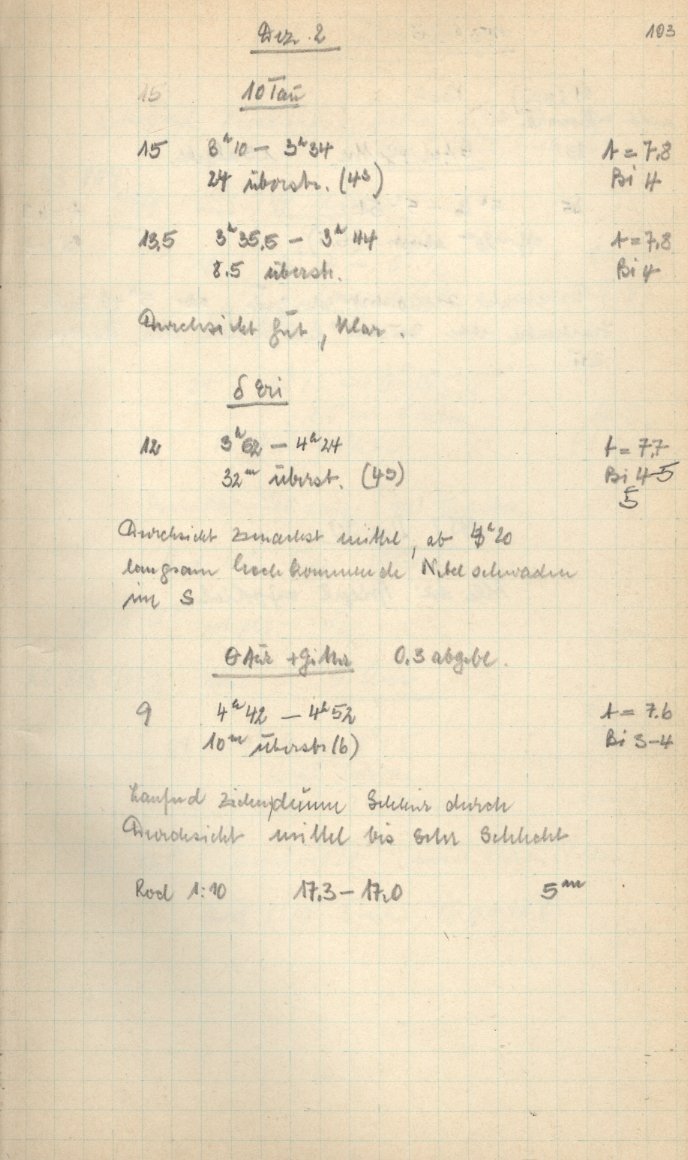 Dez. 2 103
16 10 Tau
15 3ʰ10 – 3ʰ34 t = 7,8
24 überstr. (43) Bi 4
13,5 3ʰ35,5 – 3ʰ44 t = 7,8
8.5 überstr. Bi 4
Durchsicht gut, klar.
δ Eri
12 3ʰ52 – 4ʰ24 t = 7,7
32ᵐ überst. (43) Bi 4-5
5
Durchsicht zunächst mittel, ab 4ʰ20
langsam hochkommende Nebelschwaden
im S
θ Aur + Gitter 0.3 abgebl.
9 4ʰ42 – 4ʰ52 t = 7.6
10ᵐ überstr (6) Bi 3-4
Laufend ziehen dünne Schleier durch
Durchsicht mittel bis sehr schlecht
Rod 1:10 17.3 – 17.0 5ᵐ